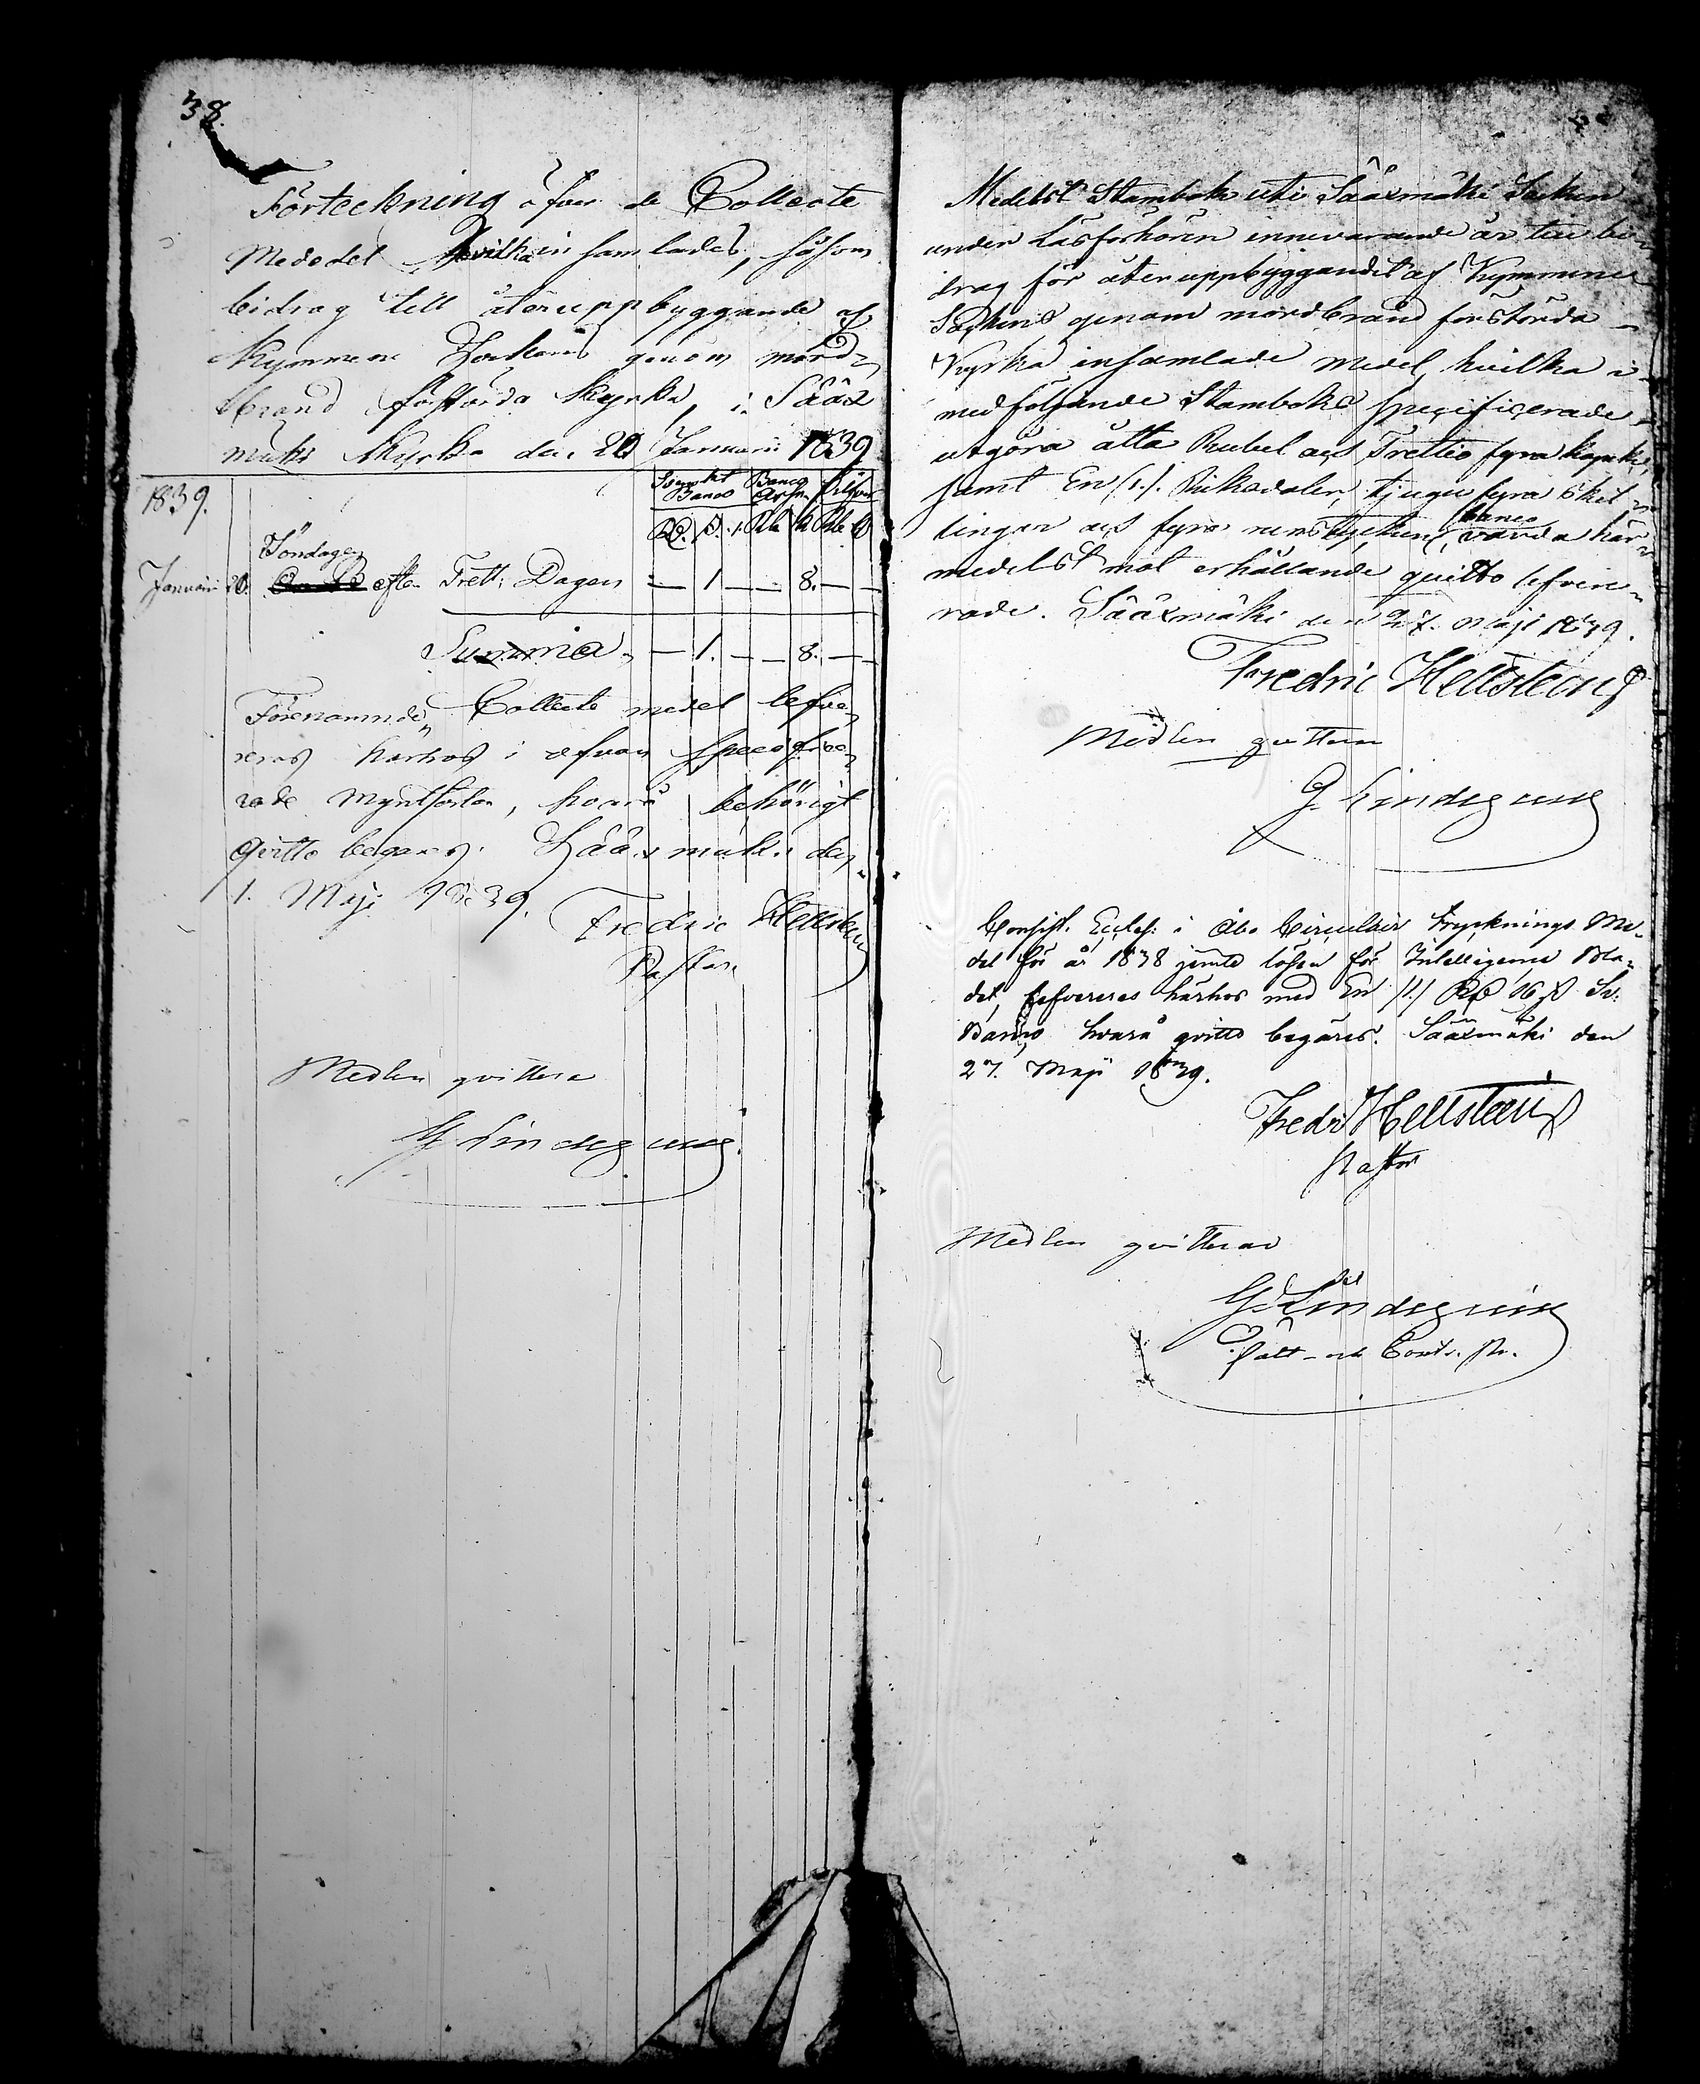 38.
Förteckning öfver de Collecte
Medel hvilka insamlades, såsom
bidrag till återuppbyggande af
Kymmene Sockens genom mord-
brand förstörda Kyrka, i Sääx
mäki Kyrka den 20 Januarii 1839
1839.
Svenskt Banco Banco Silfver
Söndagen
Januarii 20. efter Trett: Dagen — 1 — — 8. — —
Summa — 1. — — 8. — —
Förenämnde Collecte medel lefve-
reras härhos i ofvan specifice-
rade myntsorter, hvarå behörigt
qvitto begäres. Sääxmäki den
1. Maji 1839.
Fredric Hellsteen
Pastor.
Medlen qvitteras
G Lindegren
Medelst Stambok uti Sääxmäki Socken
under Läsförhören innevarande år till bi-
drag för återuppbyggandet af Kymmene
Sockens genom mordbrand förstörda
Kyrka insamlade medel, hvilka i
medföljande Stambok specificerade
utgöra åtta Rubel och Trettio fyra kopek
samt En (1.). Riksdaler, tjugu fyra skil-
lingar och fyra runstycken banco, varda här-
medelst mot erhållande quitto lefvere-
rade. Sääxmäki den 27. Maji 1839.
Fredric Hellsteen
Medlen qvitteras
G. Lindegren
Consist. Eccles: i Åbo Circulair Trycknings Me-
del för år 1838 jemte lösen för Intelligence Bla-
det, lefvereras härhos med En /1./ Rd 16 s Sv.
Banco hvarå qvitto begäres. Sääxmäki den
27. Maji 1839.
Fredr Hellsteen
Pastor
Medlen qvitteras
G. Lindegren